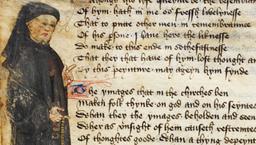 of hym hath in me so fressh lyflynesse
That to putte othir men in remembraunce
Of his persone I haue heere his lyknesse
Do make to this ende in sothfastnesse
That thei that haue of hym lest thought and mynde
By this peynture may ageyn hym fynde
The ymages that in the chirches ben
maken folk thynke on god and on his seyntes
Whan the ymages thei beholden and seen
of hem causeth restreyntes
Of thoughtes gode